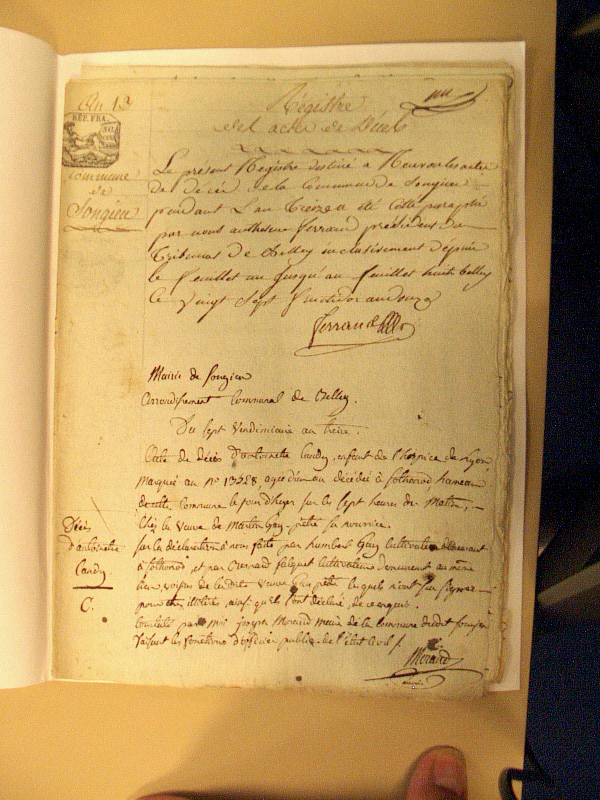 An 13
Registre
des actes de Décès
REP. FRA.
Commune
de
Songieu
Le présent Registre destiné a Recevoir les actes
de décès de la Commune de Songieu
pendant L'an Treize a été Cotté paraphé
par nous anthelme ferrand président du
Tribunal de Belley inclusivement depuis
le feuillet un jusqu'au feuillet huit Belley
le vingt Sept fructidor an douze
ferrand
Mairie de Songieu
Arrondissement Communal de Belley.
Du sept Vendémiaire an treize.
Acte de décès d'antoinette Candy, enfant de l'hospice de Lyon
Marqué au No 13528, agée d'un an décédée à Sothonod hameau
de cette Commune le jour d'hyer sur les sept heures du Matin,
Chez la veuve de Martin Gay sa nourrice.
Décès
d'antoinette
Candy
C.
Sur la déclaration à nous faite par humbert Gay cultivateur demeurant
à Sothonod, et par falquet cultivateur demeurant au même
lieu, voisins de la dite veuve Gay lesquels n'ont su signer
pour être illitérés, ainsi qu'ils l'ont déclaré, de ce requis.
Constaté par moi joseph Morand maire de la commune de Songieu
faisant les fonctions d'officier public de l'état civil.
Morand
maire